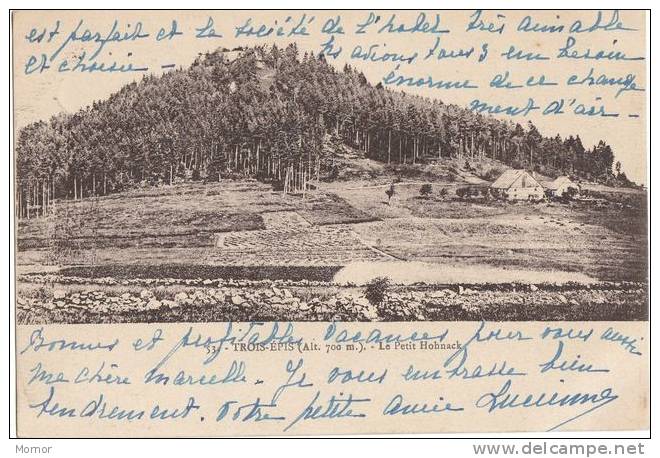 est parfait et la société de l'hotel très aimable
et choisie -
Ns avions tous 3 un besoin
énorme de ce change
ment d'air -
53. - TROIS-ÉPIS (Alt. 700 m.). - Le Petit Hohnack
Bonnes et profitables vacances pour vous aussi
ma chère Marcelle. Je vous embrasse bien
tendrement. Votre petite amie Lucienne
Momor
www.delcampe.net